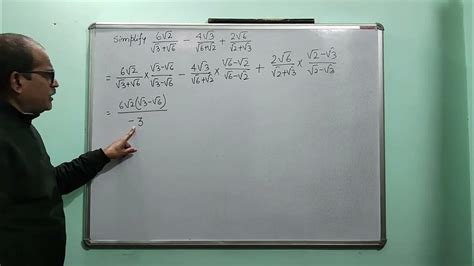 Simplify 6√2/(√3+√6) − 4√3/(√6+√2) + 2√6/(√2+√3)
= 6√2/(√3+√6) × (√3−√6)/(√3−√6) − 4√3/(√6+√2) × (√6−√2)/(√6−√2) + 2√6/(√2+√3) × (√2−√3)/(√2−√3)
= 6√2(√3−√6)/−3